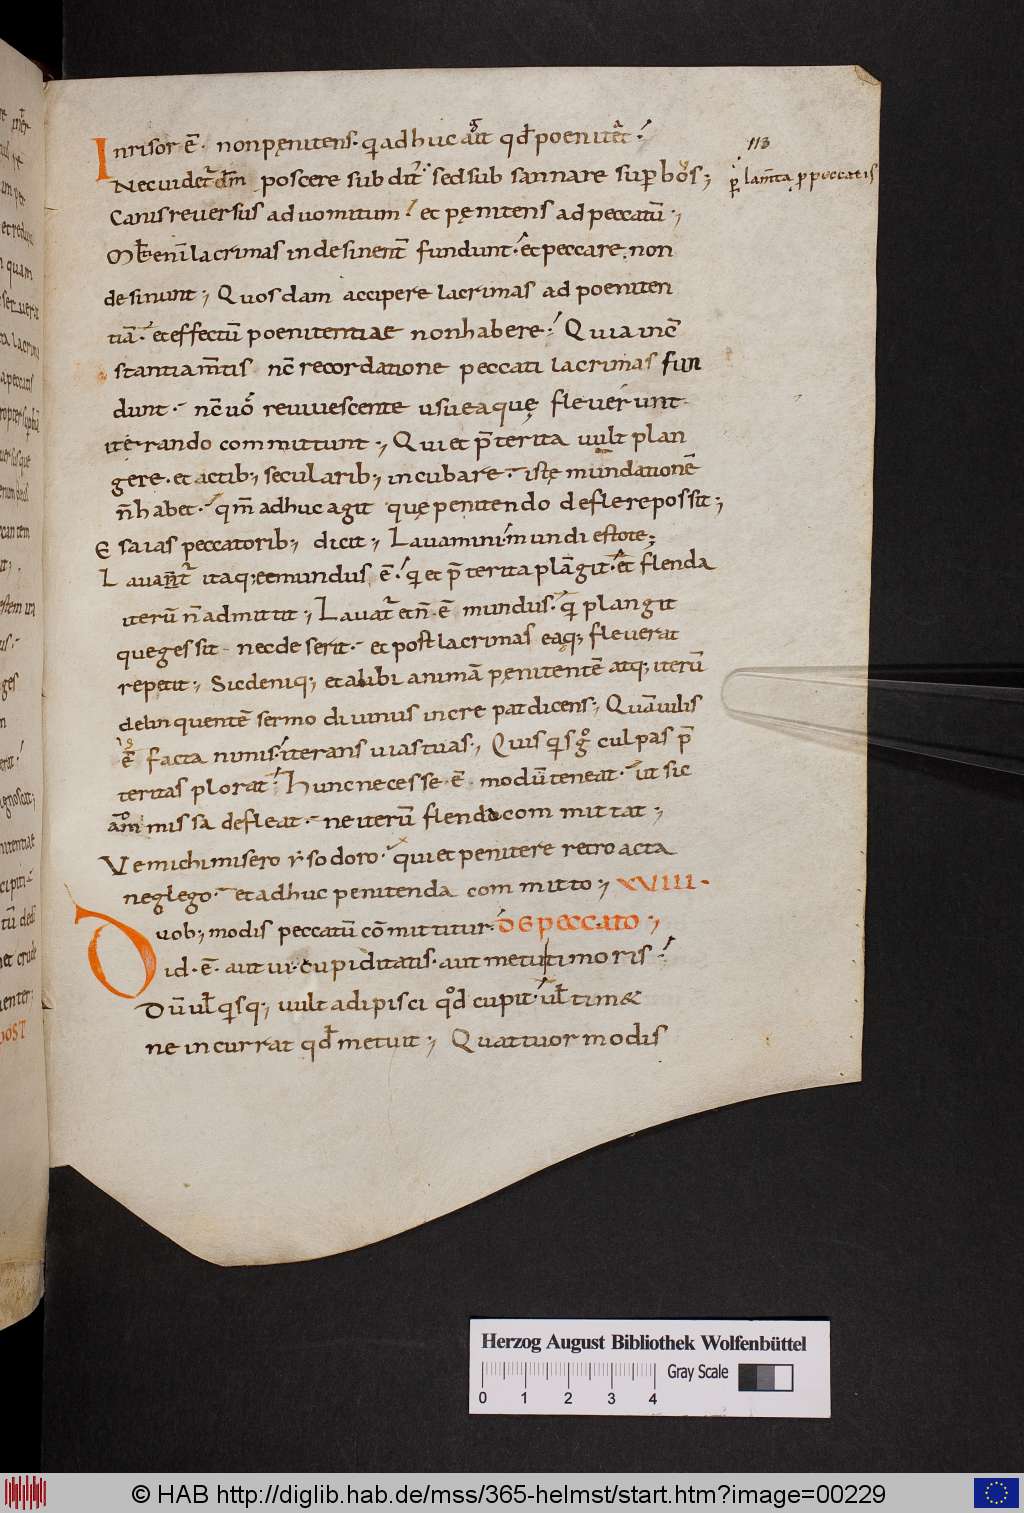 113
Inrisor ē· non pęnitens· qui adhuc aḡit qd̄ poenitet̄
Nec uidet̄ dm̄ poscere subdit' sed sub sannare superbos;
Canis reuersus ad uomitum· et pęnitens ad peccatū;
Multi enī lacrimas indesinent̄ fundunt· et peccare non
desinunt; Quosdam accipere lacrimas ad poeniten
tiā· et effectū poenitentiae non habere· Quia incon̄
stantia m̄tis nc̄ recordatione peccati lacrimas fun
dunt· nc̄ uō reuiuescente usu ea quę fleuerunt
iterando committunt; Qui et p̄terita uult plan
gere· et actib; secularib; incubare· istę mundationē
n̄ habet· qm̄ adhuc agit quę penitendo deflere possit;
Esaias peccatorib; dicit; Lauamini mundi estote;
Lauat̄ itaq; et mundus ē· qui et p̄terita plāgit· et flenda
iterū n̄ admittit; Lauat̄ et n̄ ē mundus· qui plangit
que gessit· nec deserit· et post lacrimas ea quę fleuerat
repetit; Sic deniq; et alibi animā pęnitentē atq; iterū
delinquentē sermo diuinus increpat dicens; Quā uilis
facta nimis· iterans uias tuas; Quisquis gͦ culpas p̄
teritas plorat· hunc necesse ē modū teneat· ut sic
am̄missa defleat· ne iterū flenda committat;
Ve michi misero ysodoro· qui et penitere retro acta
neglego· et adhuc penitenda committo; XVIIII·
Duob; modis peccatū cōmittitur· DE PECCATO;
id· ē· aut ui cupiditatis· aut metu timoris·
Dū uł quisq; uult adipisci qd̄ cupit· uł tim&
ne incurrat qd̄ metuit; Quattuor modis
Herzog August Bibliothek Wolfenbüttel
Gray Scale
0 1 2 3 4
© HAB http://diglib.hab.de/mss/365-helmst/start.htm?image=00229